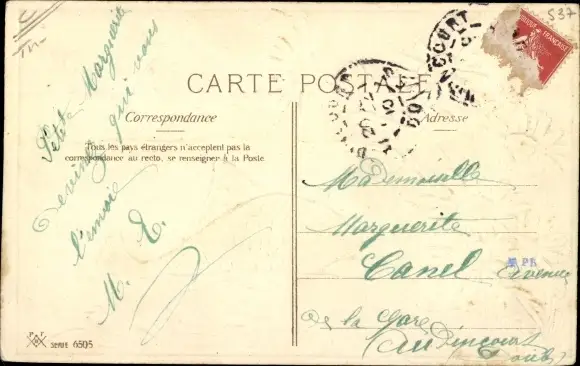 537
CARTE POSTALE
Correspondance
Adresse
Tous les pays étrangers n'acceptent pas la
correspondance au recto, se renseigner à la Poste.
Petite Marguerite
Devinez qui vous
l'envoie
M. E.
Mademoiselle
Marguerite
Canel Avenue
de la Gare
Audincourt
Doubs
SERIE 6505